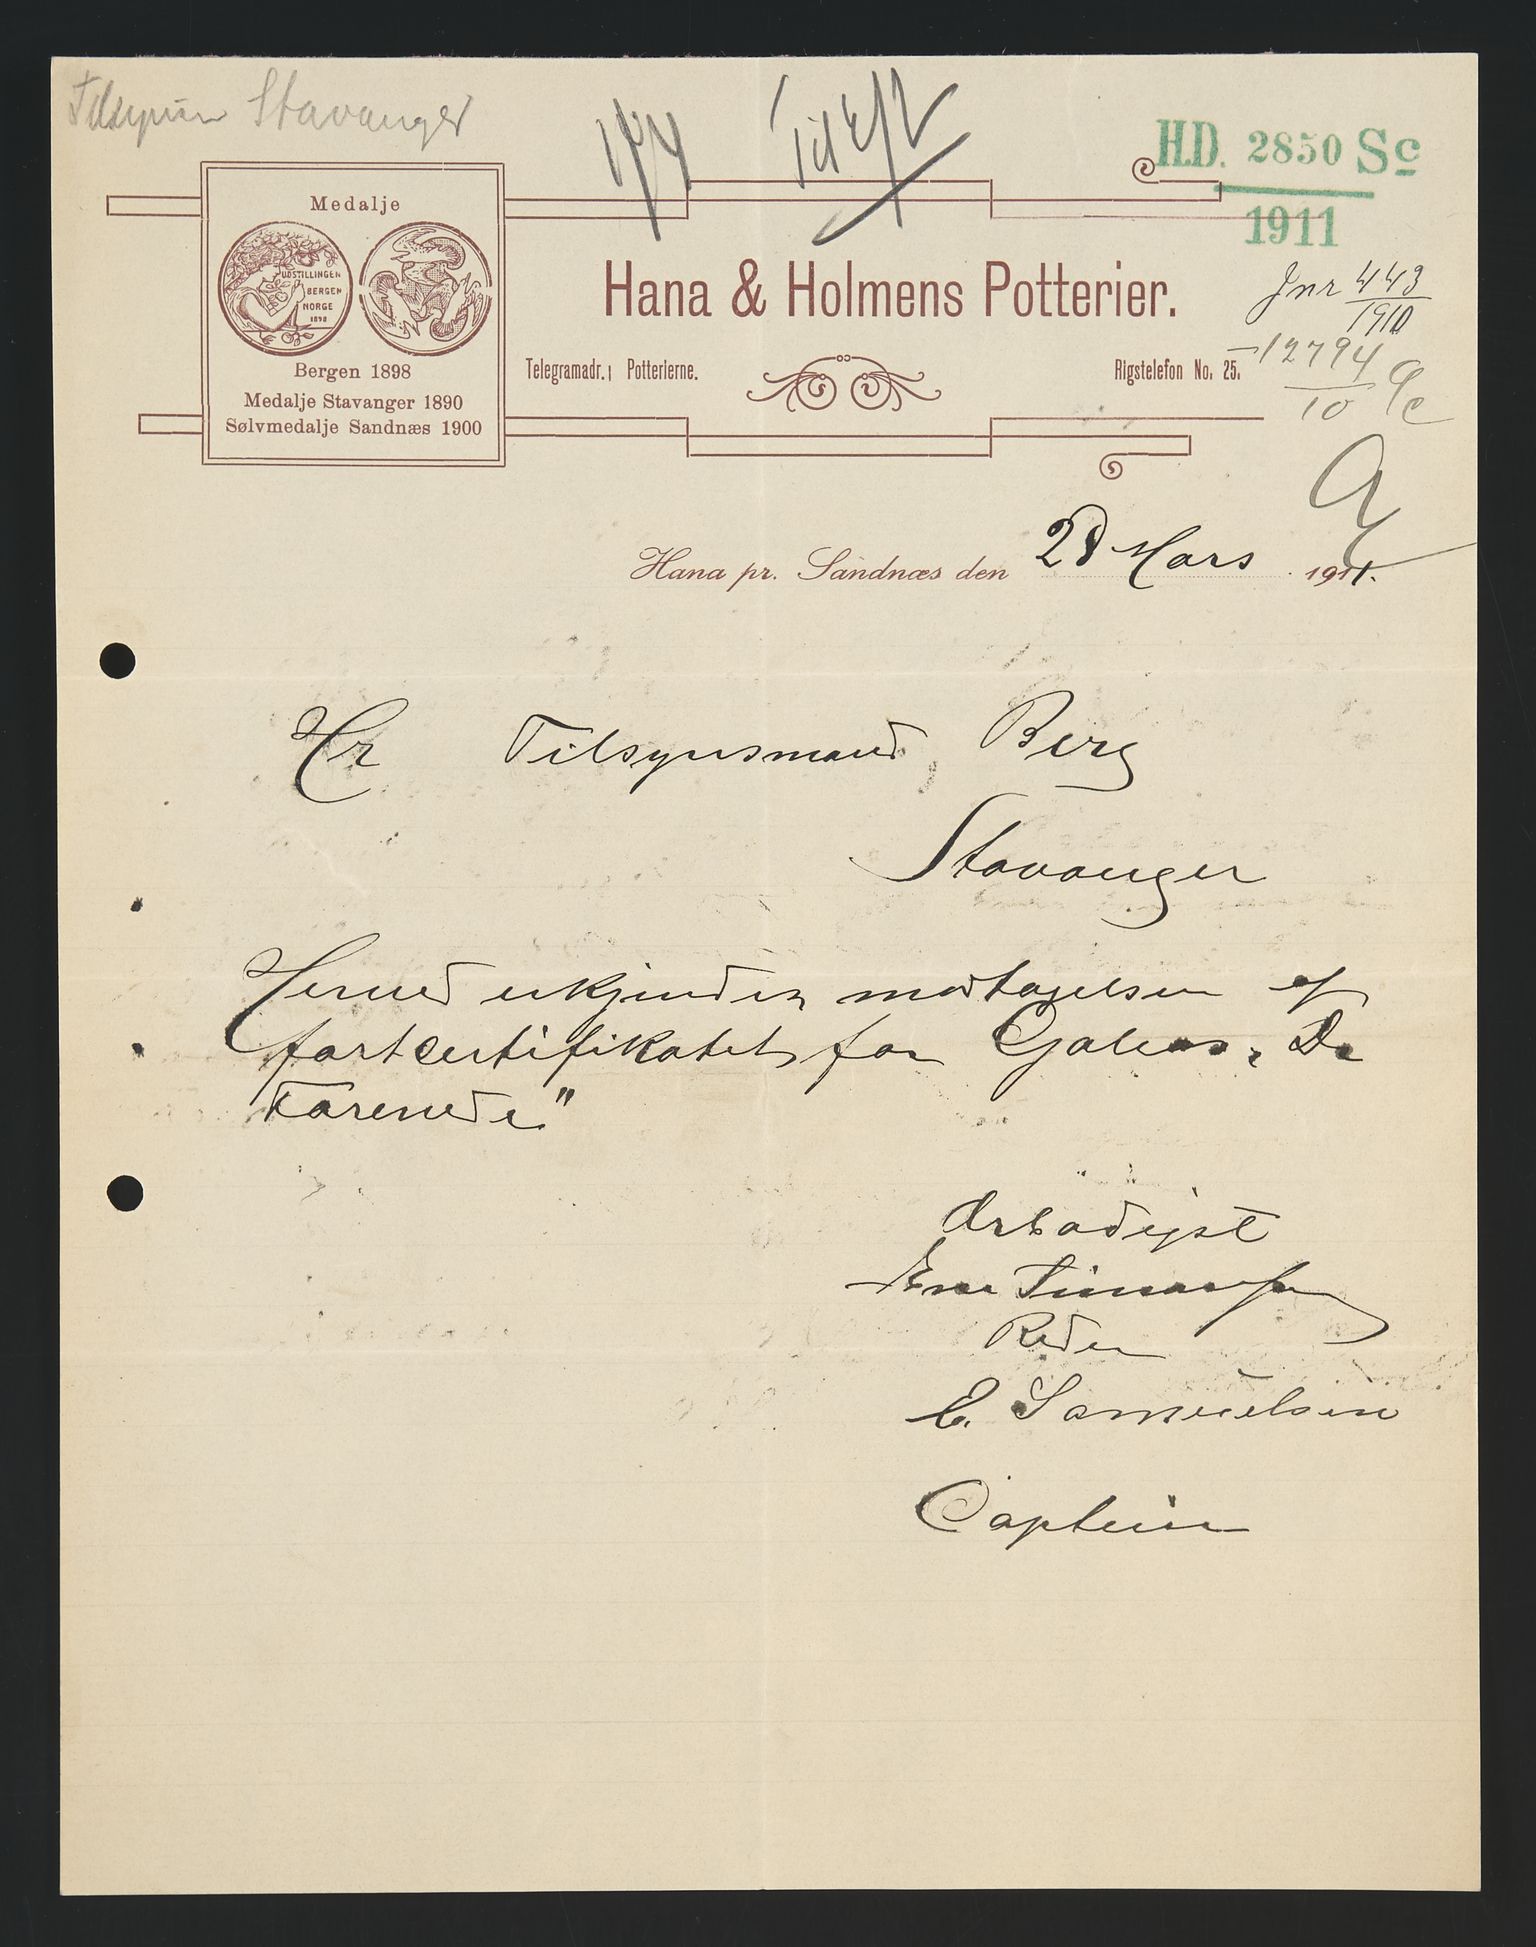 Tilsynet Stavanger
H.D. 2850 Sc
1911
Medalje
UDSTILLINGEN
BERGEN
NORGE
1898
Bergen 1898
Medalje Stavanger 1890
Sølvmedalje Sandnæs 1900
Hana & Holmens Potterier.
Telegramadr.: Potterierne.
Rigstelefon No. 25.
Jnr 443
1910
12794
10
Hana pr. Sandnæs den 28 Mars 1911.
Hr Tilsynsmand Berg
Stavanger
Herved erkjendes modtagelsen af
fartcertifikatet for Galeas "De
Farende"
Ærbødigst
Reder
E. Samuelsen
Captein